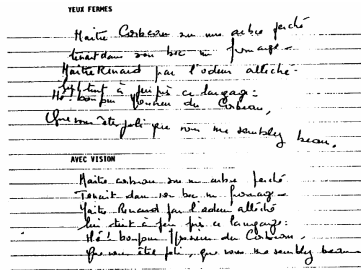 YEUX FERMES
Maitre Corbeau sur une arbre perché
tenait dans son bec un fromage
Maitre Renard par l'odeur alléché
lui tint à peu près ce langage:
Hé bonjour Monsieur du Corbeau,
Que vous êtes joli que vous me semblez beau.
AVEC VISION
Maitre corbeau sur un arbre perché
Tenait dans son bec un fromage
Maitre Renard par l'odeur alléché
lui tint à peu près ce langage:
Hé! bonjour Monsieur du Corbeau.
Que vous êtes joli, que vous me semblez beau